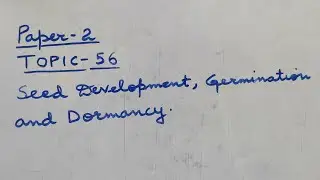 Paper-2
TOPIC-56
Seed Development, Germination
and Dormancy.